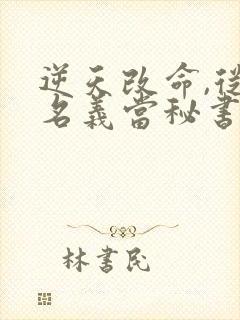 逆天改命,從
名義當秘書
林書民